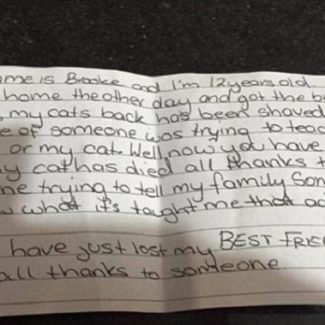 ame is Brooke and I'm 12 years old.
home the other day and got the b
my cats back has been shaved
e of someone was trying to teac
or my cat. Well, now you have
y cat has died all thanks t
ne trying to tell my family Som
w what it's taught me that
have just lost my BEST FRIE
all thanks to someone.